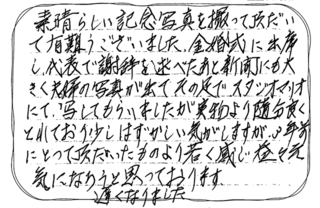 素晴らしい記念写真を撮って頂だい
て有難うございました。金婚式に出席
し、代表で謝辞を述べたあと新聞にも大
きく夫婦の写真が出て その足で スタジオマリオ
にて、写してもらいましたが実物より随分良く
とれており少しはずかしい気がしますが、年前
にとって頂だいたものより若く感じ 益々元
気になろうと思っております
遅くなりました